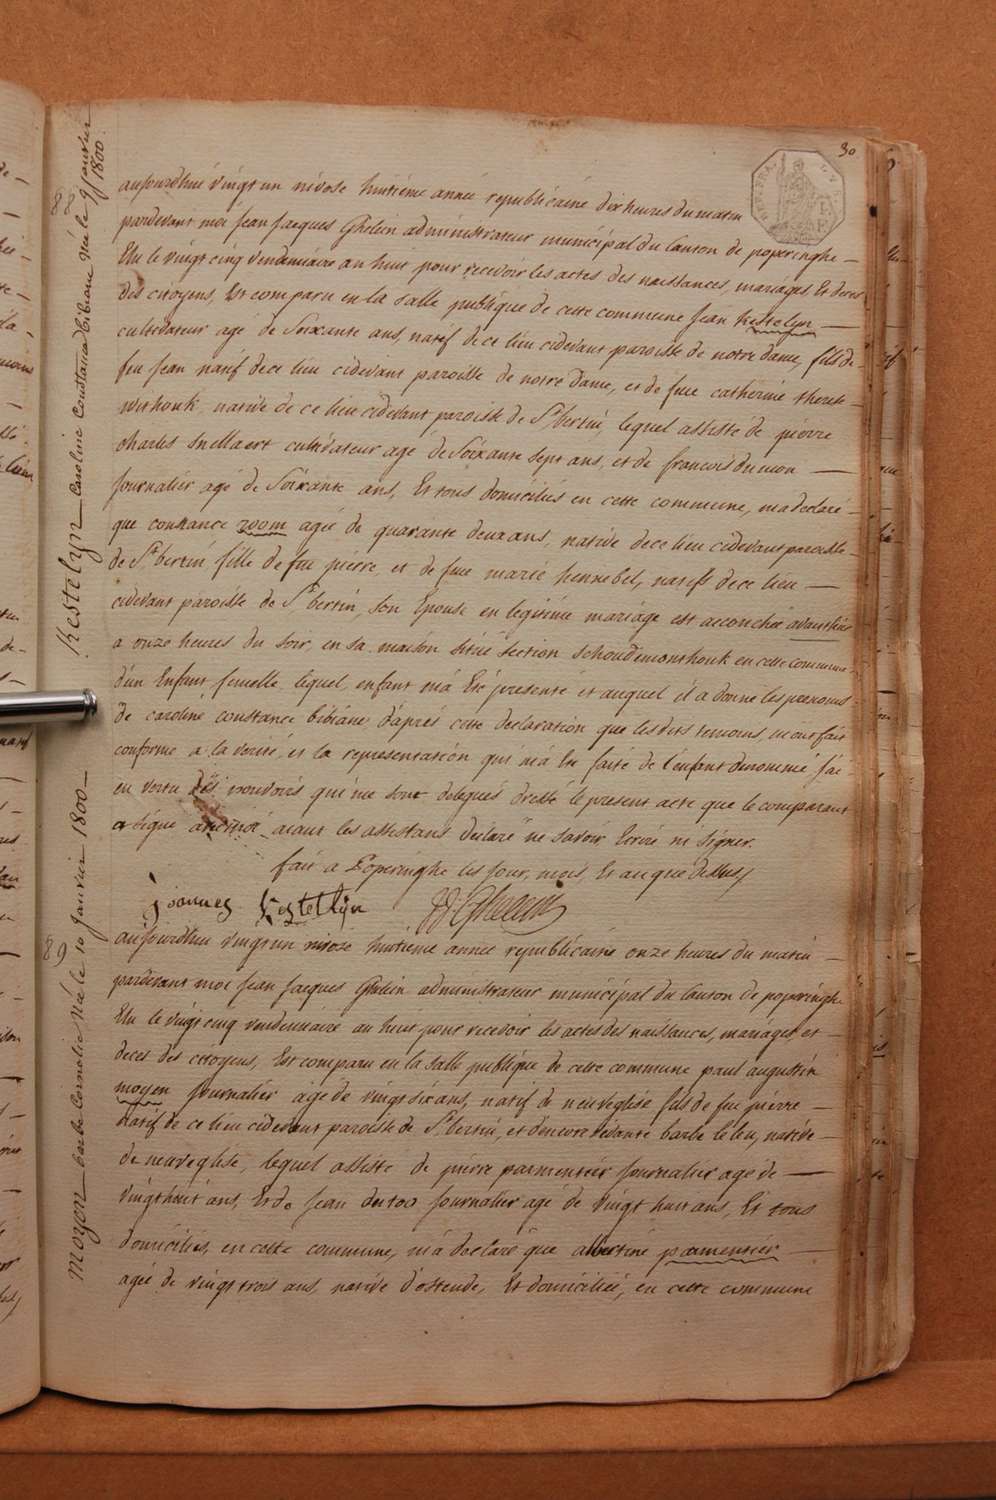 30
8
Kestelyn Caroline Constance Bibiane Née le 9 janvier 1800.
aujourdhui vingt un nivose huitieme année republicaine dix heures du matin
pardevant moi Jean Jacques Ghelein administrateur municipal du Canton de poperinghe —
Elu le vingt cinq vendemiaire an huit pour recevoir les actes des naissances, mariages Et deces
des citoyens, Est comparu en la salle publique de cette commune Jean Kestelyn —
cultivateur agé de Soixante ans, natif de ce lieu cidevant paroisse de notre dame, fils de
feu Jean natif de ce lieu cidevant paroisse de notre dame, et de feue catherine therese
withouk, native de ce lieu cidevant paroisse de St bertin, lequel assisté de pierre
charles Snellaert cultivateur agé de Soixante sept ans, et de francois dumon —
journalier agé de Soixante ans, Et tous domiciliés en cette commune, ma declaré
que constance room agée de quarante deux ans, native de ce lieu cidevant paroisse
de St bertin fille de feu pierre et de feue marie hennebel, natifs de ce lieu —
cidevant paroisse de St bertin, son Epouse en legitime mariage est accouchée avanthier
a onze heures du soir en sa maison située section Schoudemonthouk en cette commune
d'un Enfant femelle, lequel enfant m'a Eté presenté et auquel il a donné les prenoms
de caroline constance bibiane, d'après cette declaration que lesdits temoins, m'ont fait
conforme a la verité, et la representation qui m'a Eté faite de l'enfant denommé, J'ai
en vertu des pouvoirs qui me sont delegués dressé le present acte que le comparant
a signé avec moi aiant les assistans declaré ne savoir Ecrire ni signer.
fait a Poperinghe les jour, mois, Et an que dessus
joannes Kestellyn JJ Ghelein
89
Moyen barbe Cornelie Née le 10 Janvier 1800 —
aujourdhui vingt un nivose huitieme année republicaine onze heures du matin —
pardevant moi Jean Jacques Ghelein administrateur municipal du Canton de poperinghe
Elu le vingt cinq vendemiaire an huit pour recevoir les actes des naissances, mariages, et —
deces des citoyens, Est comparu en la salle publique de cette commune paul augustin
moyen journalier agé de vingt six ans, natif de neuveglise fils de feu pierre —
natif de ce lieu cidevant paroisse de St bertin, et d'encore vivante barbe le leu, native —
de neuveglise, lequel assisté de pierre parmentier journalier agé de —
vingt huit ans, Et de Jean journalier agé de vingt huit ans, Et tous
domiciliés, en cette commune, m'a declaré que albertine parmentier —
agée de vingt trois ans, native d'ostende, Et domiciliée, en cette commune